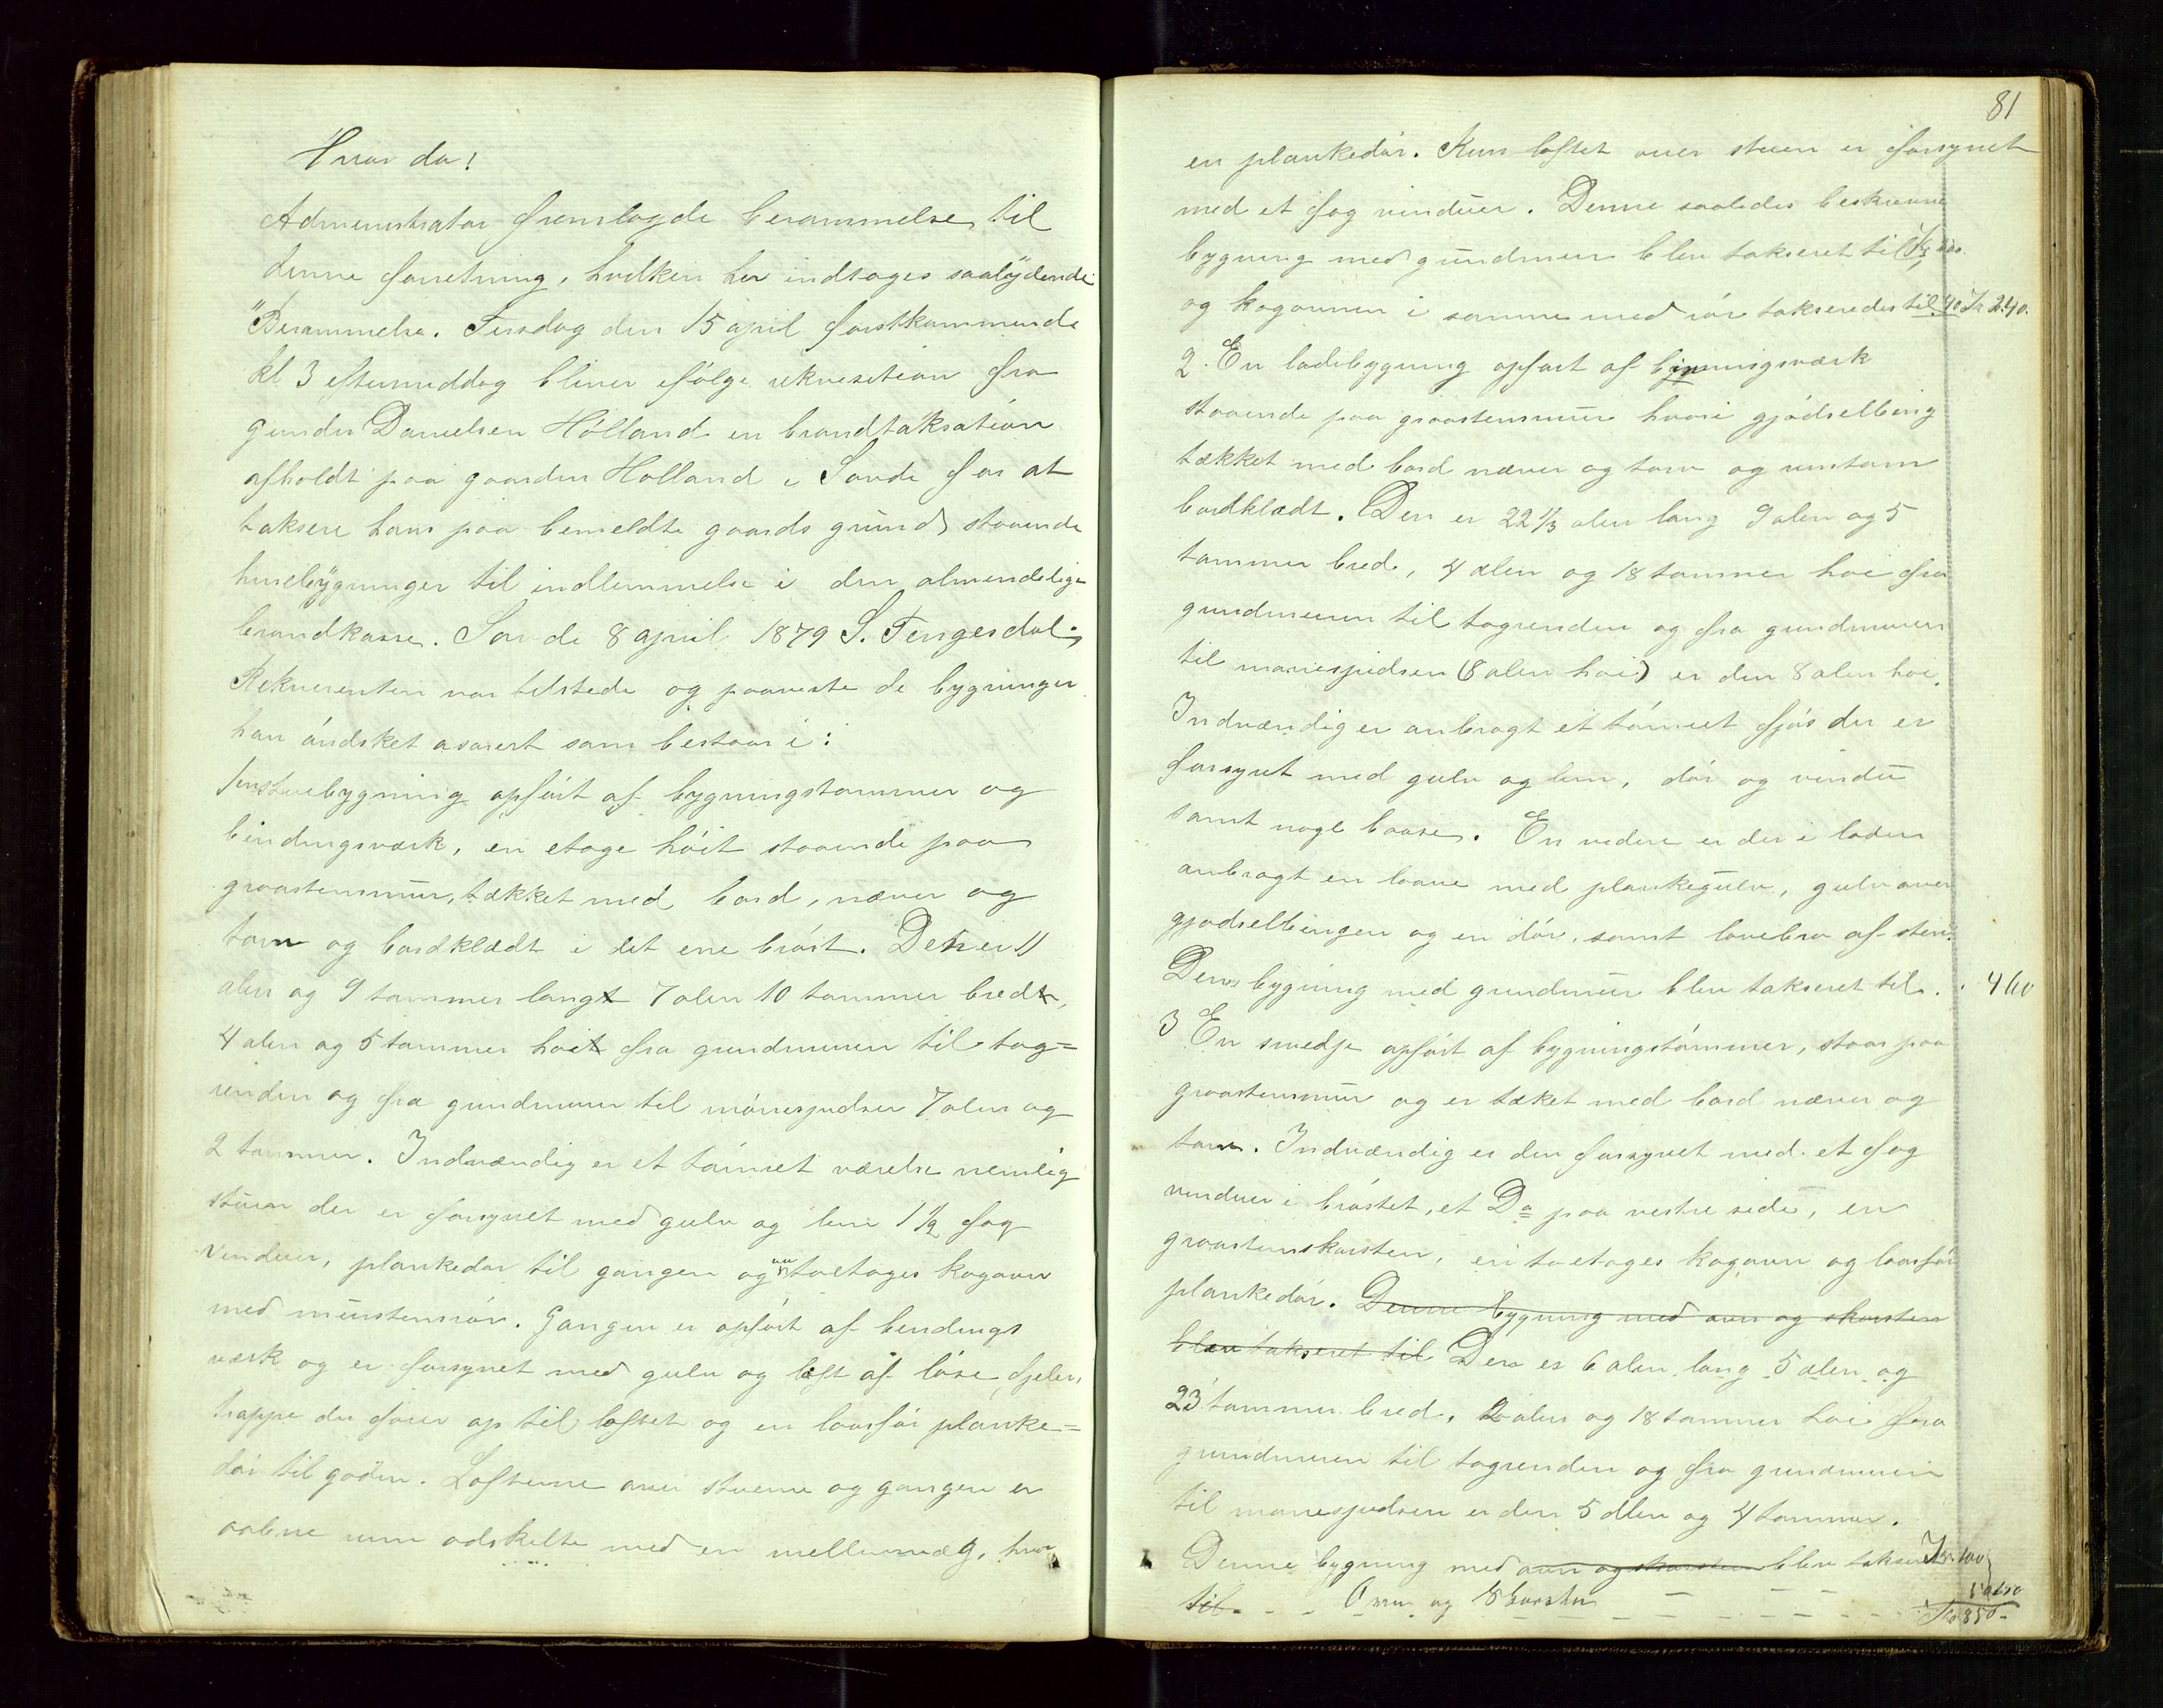 Hvor da!
Administrator fremlagde berammelse til
denne forretning, hvilken her indtages saalÿdende
"Berammelse. Tirsdag den 15 april førstkommende
kl 3 eftermiddag bliver ifølge rekvesition fra
Gunder Danielsen Hólland en brandtaksation
afholdt paa gaarden Hølland i Sande for at
taksere hans paa bemeldte gaards grund staaende
husebÿgninger til indlemmelse i den almindelige
brandkasse. Sande 8 april 1879 S. Tengesdal"
Rekvirenten var tilstede og paaviste de bygninger
han óndsket asorert som bestaar i:
stuebygning opfórt af bygningstømmer og
bindingsværk, en etage hóit staaende paa
graastensmur, tækket med bord, næver og
torv og bordklædt i det ene bróst. Den er 11
alen og 9 tommer langt 7 alen 10 tommer bredt,
4 alen og 5 tommer høit fra grundmuren til tag=
renden og fra grundmuren til mónespidsen 7 alen og
2 tommer. Indvændig er et tómret værelse nemlig
stuen der er forsynet med gulv og lem 1 1/2 fag
vinduer, plankedør til gangen og en toetages kogovn
med murstensrór. Gangen er opfórt af bendings
værk og er forsynet med gulv og loft af lóse fjeler,
trappe der fører op til loftet og en laasfór planke=
dór til gaden. Lofterne over stuerne og gangen er
aabne rum adskelte med en mellemvæg, hvor
81
en plankedór. Kun loftet over stuen er forsynet
med et fag vinduer. Denne saaledes beskrevne
bygning med grundmur blev takseret til Kr 200.
og kogovnen i samme med rór takseredes til 40 Kr 240.
2. En ladebygning opført af bindningsværk
staaende paa graastensmur hvori gjódselbing
tækket med bord næver og torv og rundtom
bordklædt. Den er 22 1/3 alen lang 9 alen og 5
tommer bred, 4 alen og 18 tommer hoi fra
grundmuren til tagrenden og fra grundmuren
til mønespidsen (8 alen høi) er den 8 alen høi.
Indvændig er anbragt et tómret fjós der er
forsynet med gulv og lem, dór og vindu
samt nogle baase. En videre er der i laden
anbragt en laave med plankegulv, gulv over
gjødselbingen og en dór, samt lavebro af sten.
Denne bygning med grundmur blev takseret til . . 460
3 En smedje opfórt af bygningstómmer, staar paa
graastensmur og er tæket med bord næver og
torv. Indvændig er den forsynet med et fag
vinduer i bróstet, et Do paa vestre side, en
graastenskorsten, en toetages kogovn og laasfór
plankedór. Denne bygning med ovn og skorsten
blev takseret til Den er 6 alen lang 5 alen og
23 tommer bred, 2 alen og 18 tommer høi fra
grundmuren til tagrenden og fra grundmuren
til mønespidsen er den 5 alen og 4 tommer.
Denne bygning med ovn og skorsten blev takseret Kr 100
til - - - Ovnen og Skorsten - - - - - -
Kr 850-